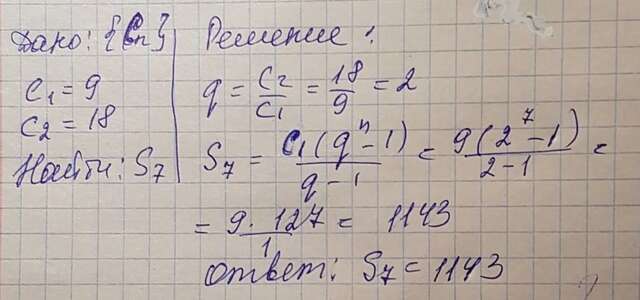 Дано: {Cn}
C₁ = 9
C₂ = 18
Найти: S₇
Решение:
q = C₂/C₁ = 18/9 = 2
S₇ = C₁(qⁿ-1)/q-1 = 9(2⁷-1)/2-1 =
= 9·127/1 = 1143
ответ: S₇ = 1143